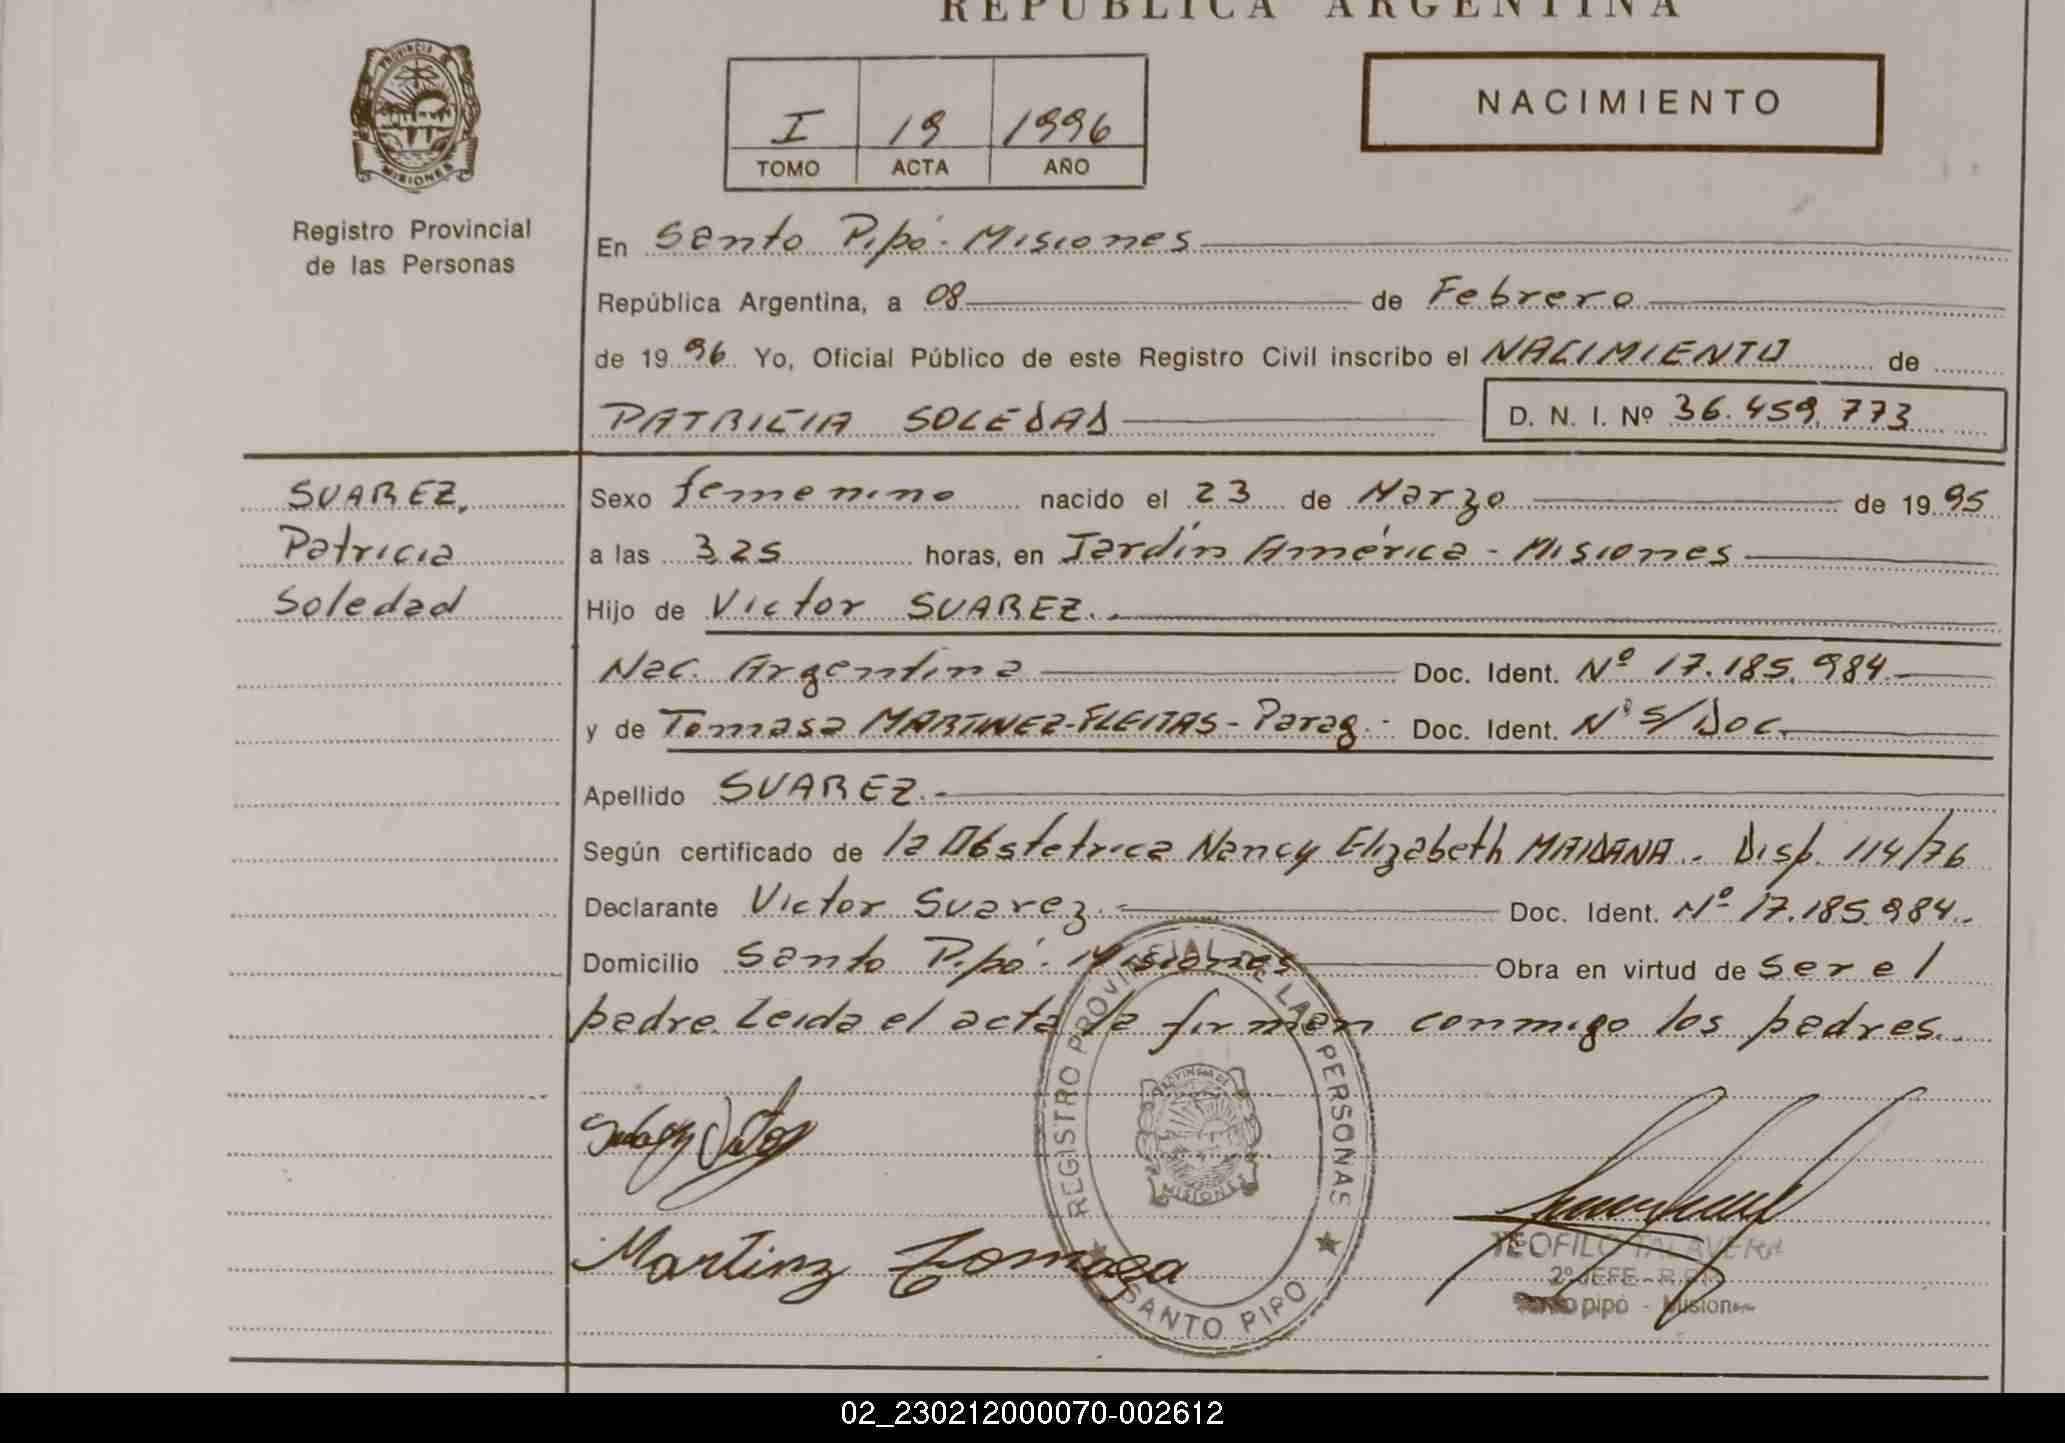 REPUBLICA ARGENTINA
PROVINCIA DE
MISIONES
Registro Provincial
de las Personas
I 19 1996
TOMO ACTA AÑO
NACIMIENTO
En Santo Pipó - Misiones
República Argentina, a 08 de Febrero
de 19 96 Yo, Oficial Público de este Registro Civil inscribo el NACIMIENTO de
PATRICIA SOLEDAD D. N. I. Nº 36.459.773
SUAREZ,
Patricia
Soledad
Sexo femenino nacido el 23 de Marzo de 19 95
a las 3,25 horas, en Jardín América - Misiones
Hijo de Victor SUAREZ.-
Nac. Argentina Doc. Ident. Nº 17.185.984
y de Tomasa MARTINEZ-FLEITAS - Parag.- Doc. Ident. Nº S/Doc.
Apellido SUAREZ.-
Según certificado de la Obstetrica Nancy Elizabeth MAIDANA. Disp. 114/76
Declarante Victor Suarez.- Doc. Ident. Nº 17.185.984.
Domicilio Santo Pipó - Misiones Obra en virtud de ser el
padre. Leida el acta la firman conmigo los padres.
REGISTRO PROVINCIAL DE LAS PERSONAS
PROVINCIA DE
MISIONES
SANTO PIPO
Martinz Tomasa
TEOFILO TALAVERA
2º JEFE - R.P.P.
Santo pipó - Misiones
02_230212000070-002612